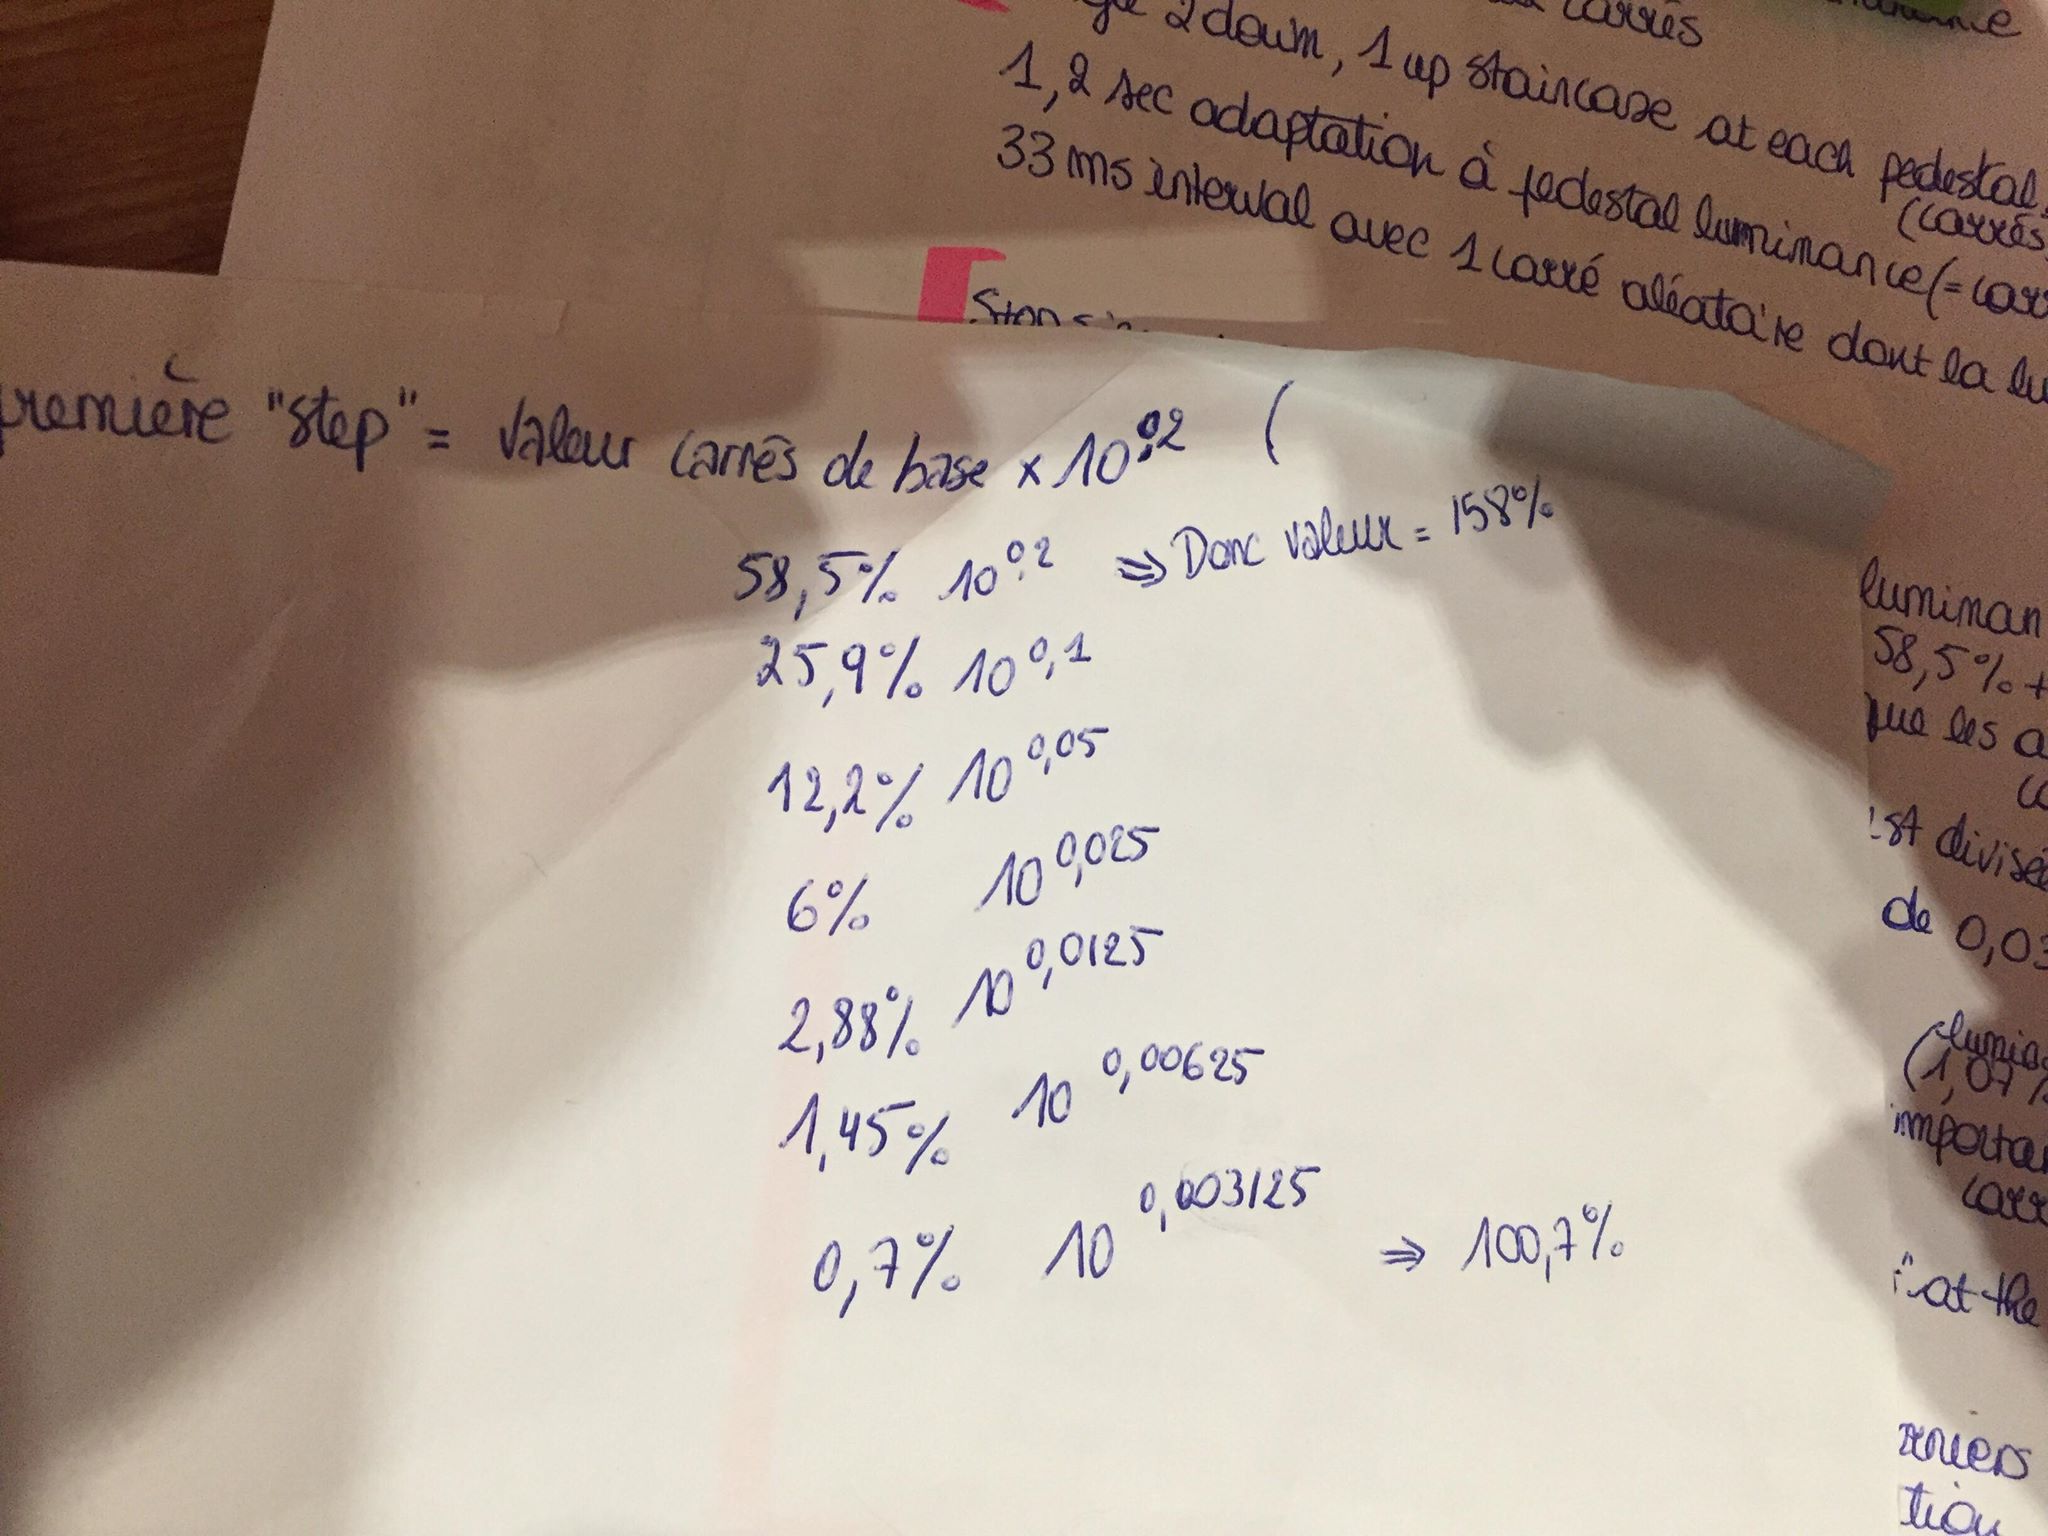 carrés
2 down, 1 up staircase at each pedestal
(carrés
1,2 sec adaptation à pedestal luminance (=
33 ms interval avec 1 carré aléatoire dont la
première "step" = valeur carrés de base × 10^0,2 (
58,5% 10^0,2 => Donc valeur = 158%
25,9% 10^0,1
12,2% 10^0,05
6% 10^0,025
2,88% 10^0,0125
1,45% 10^0,00625
0,7% 10^0,003125 => 100,7%
luminan
58,5% +
que les a
est divisé
de 0,03
(1,07%
importa
carr
at the
tion